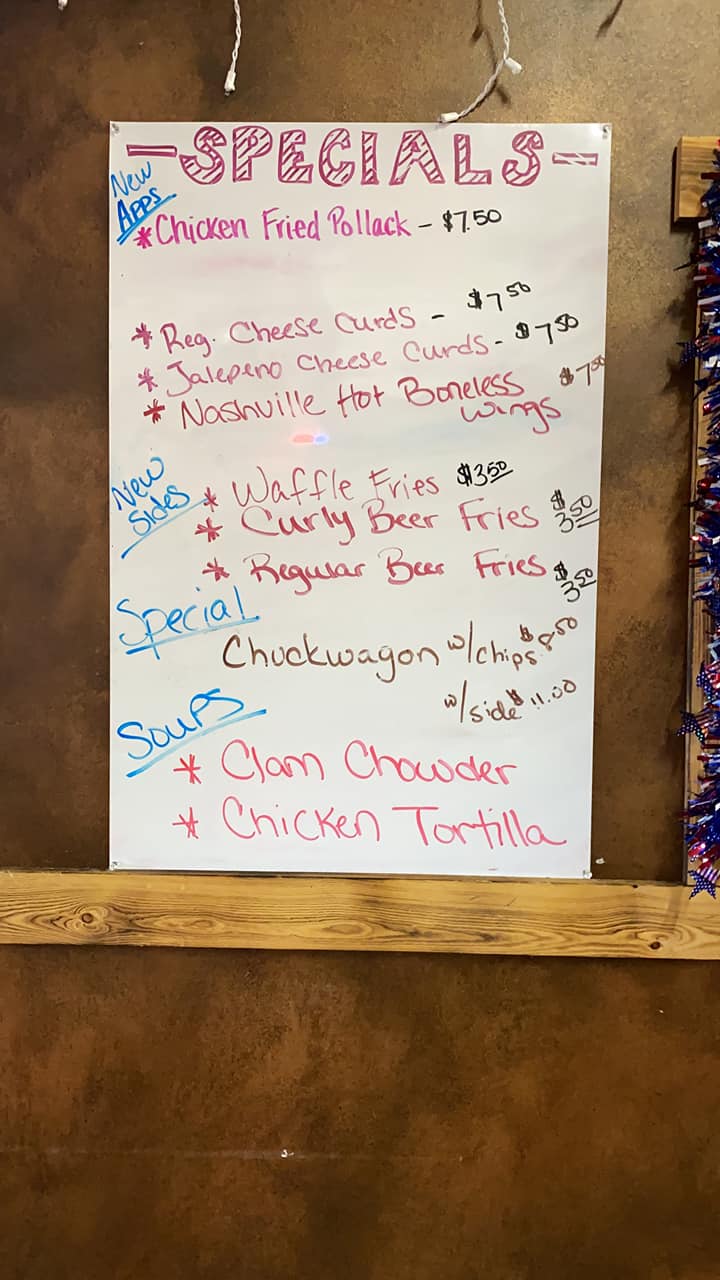 -SPECIALS-
New Apps
*Chicken Fried Pollack - $7.50
* Reg. Cheese Curds - $7 50
* Jalepeno Cheese Curds - $7 50
* Nashville Hot Boneless $7 50
wings
New Sides
* Waffle Fries $3 50
* Curly Beer Fries $3 50
* Regular Beer Fries $3 50
Special
Chuckwagon w/chips $8.50
w/side $11.00
Soups
* Clam Chowder
* Chicken Tortilla